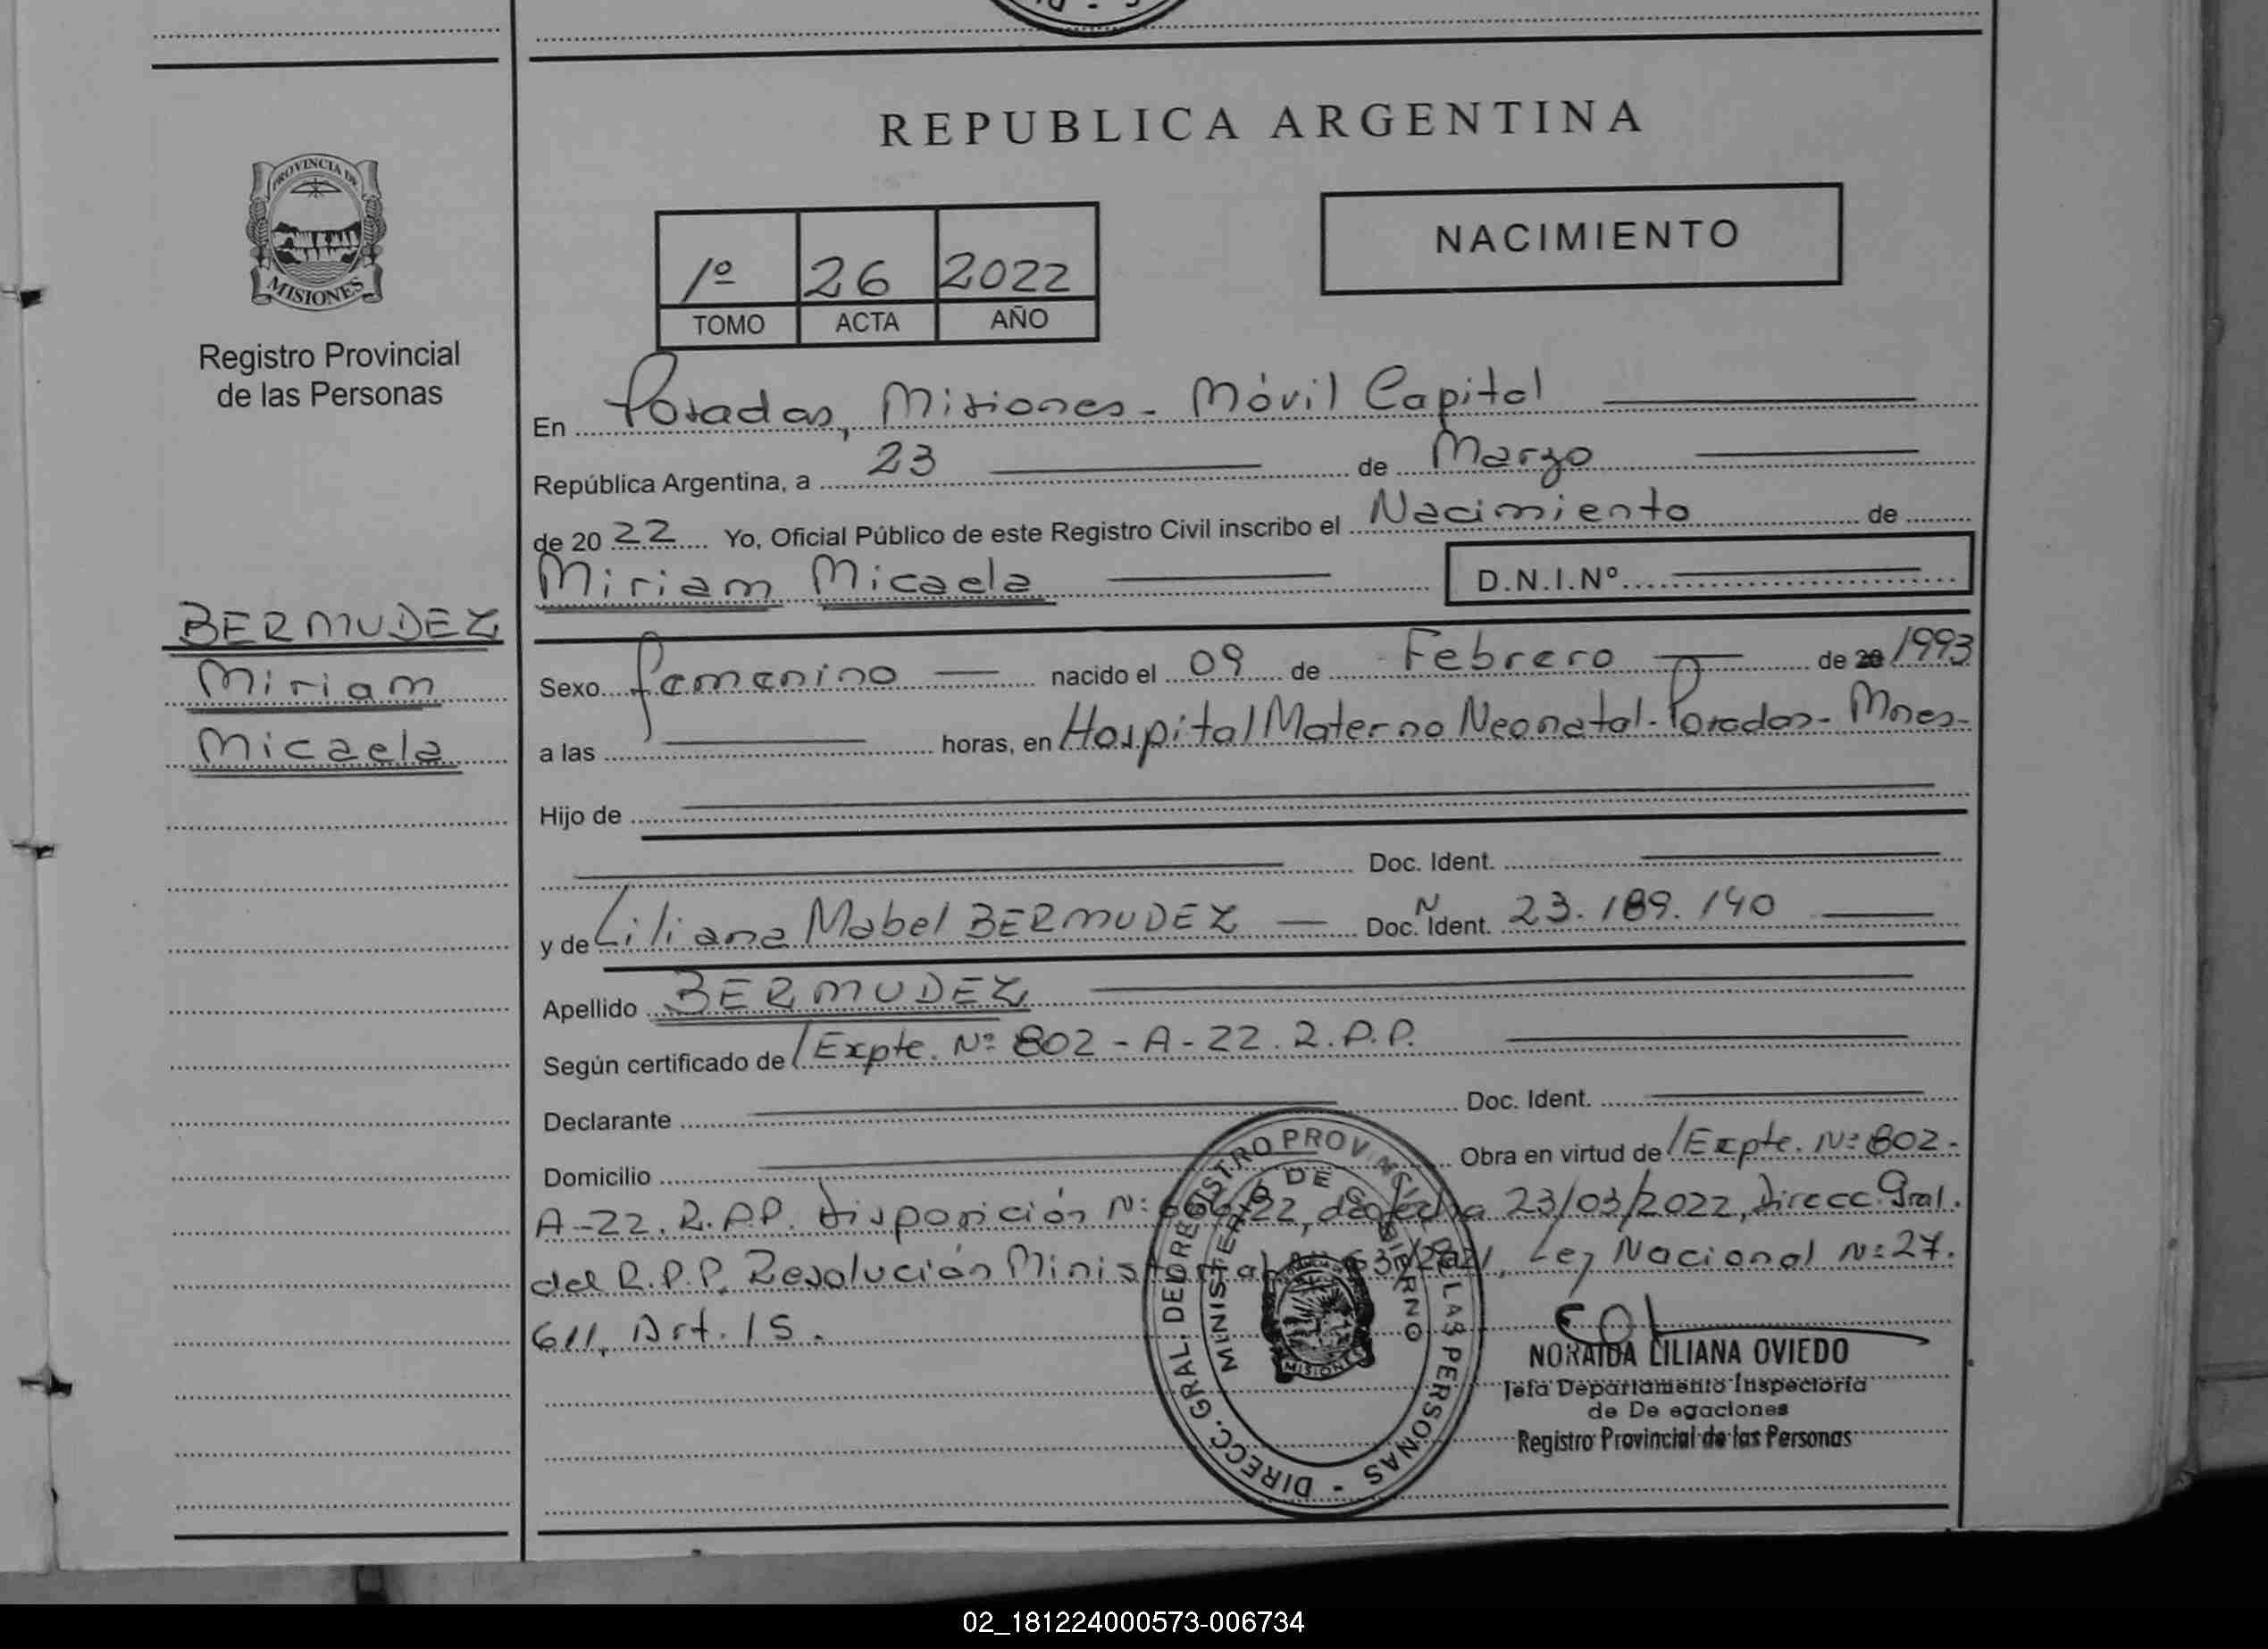 REPUBLICA ARGENTINA
PROVINCIA DE
MISIONES
Registro Provincial
de las Personas
NACIMIENTO
1º 26 2022
TOMO ACTA AÑO
En Posadas, Misiones - Móvil Capital
República Argentina, a 23 de Marzo
de 2022 Yo, Oficial Público de este Registro Civil inscribo el Nacimiento de
Miriam Micaela D.N.I.Nº
BERMUDEZ
Miriam
Micaela
Sexo femenino nacido el 09 de Febrero de 20 1993
a las horas, en Hospital Materno Neonatal - Posadas - Mnes-
Hijo de
Doc. Ident.
y de Liliana Mabel BERMUDEZ Doc. N Ident. 23.189.140
Apellido BERMUDEZ
Según certificado de /Expte. Nº 802 - A - 22. R.P.P.
Declarante Doc. Ident.
Domicilio Obra en virtud de /Expte. Nº 802-
A-22. R.P.P. Disposición Nº /22, de fecha 23/03/2022, Direcc. Gral.
del R.P.P. Resolución Ministerial /2021, Ley Nacional Nº 27.
611, Art. 15.
DIRECC. GRAL. DEL REGISTRO PROVINCIAL DE LAS PERSONAS -
MINISTERIO DE GOBIERNO
MISIONES
NORAIDA LILIANA OVIEDO
Jefa Departamento Inspectoria
de De egaciones
Registro Provincial de las Personas
02_181224000573-006734